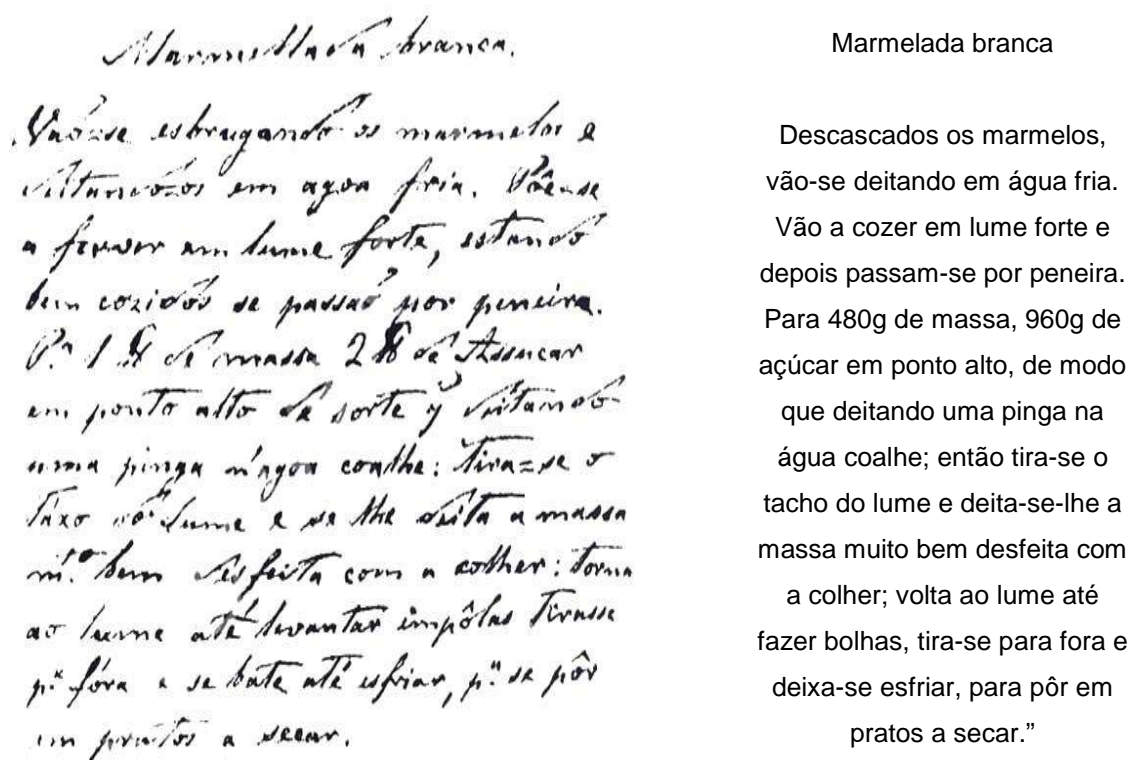 Marmellada branca.
Vaõ=se esbrugando os marmelos e
deitandoos em agoa fria. Põe=se
a ferver em lume forte, estando
bem cozidos se passaõ por peneira.
P.ª 1 ℔ de massa 2 ℔ de Assucar
em ponto alto de sorte q̃ deitando
uma pinga n'agoa coalhe: tira=se o
taxo do lume e se lhe deita a massa
m.to bem desfeita com a colher: torna
ao lume até levantar impôlas tirasse
p.ª fóra e se bate até esfriar, p.ª se pôr
em pratos a secar.
Marmelada branca
Descascados os marmelos,
vão-se deitando em água fria.
Vão a cozer em lume forte e
depois passam-se por peneira.
Para 480g de massa, 960g de
açúcar em ponto alto, de modo
que deitando uma pinga na
água coalhe; então tira-se o
tacho do lume e deita-se-lhe a
massa muito bem desfeita com
a colher; volta ao lume até
fazer bolhas, tira-se para fora e
deixa-se esfriar, para pôr em
pratos a secar.”